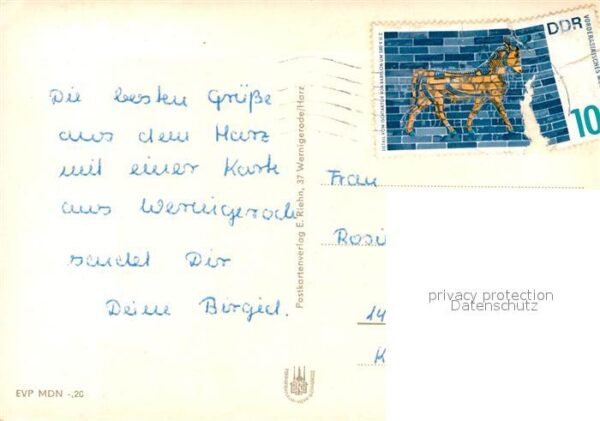 DDR
VORDERASIATISCHES
10
Die besten Grüße
aus dem Harz
mit einer Karte
aus Wernigerode
sendet Dir
Deine Birgid.
Postkartenverlag E. Riehn, 37 Wernigerode/Harz
Frau
Rosi
14
K
privacy protection
Datenschutz
EVP MDN -,20